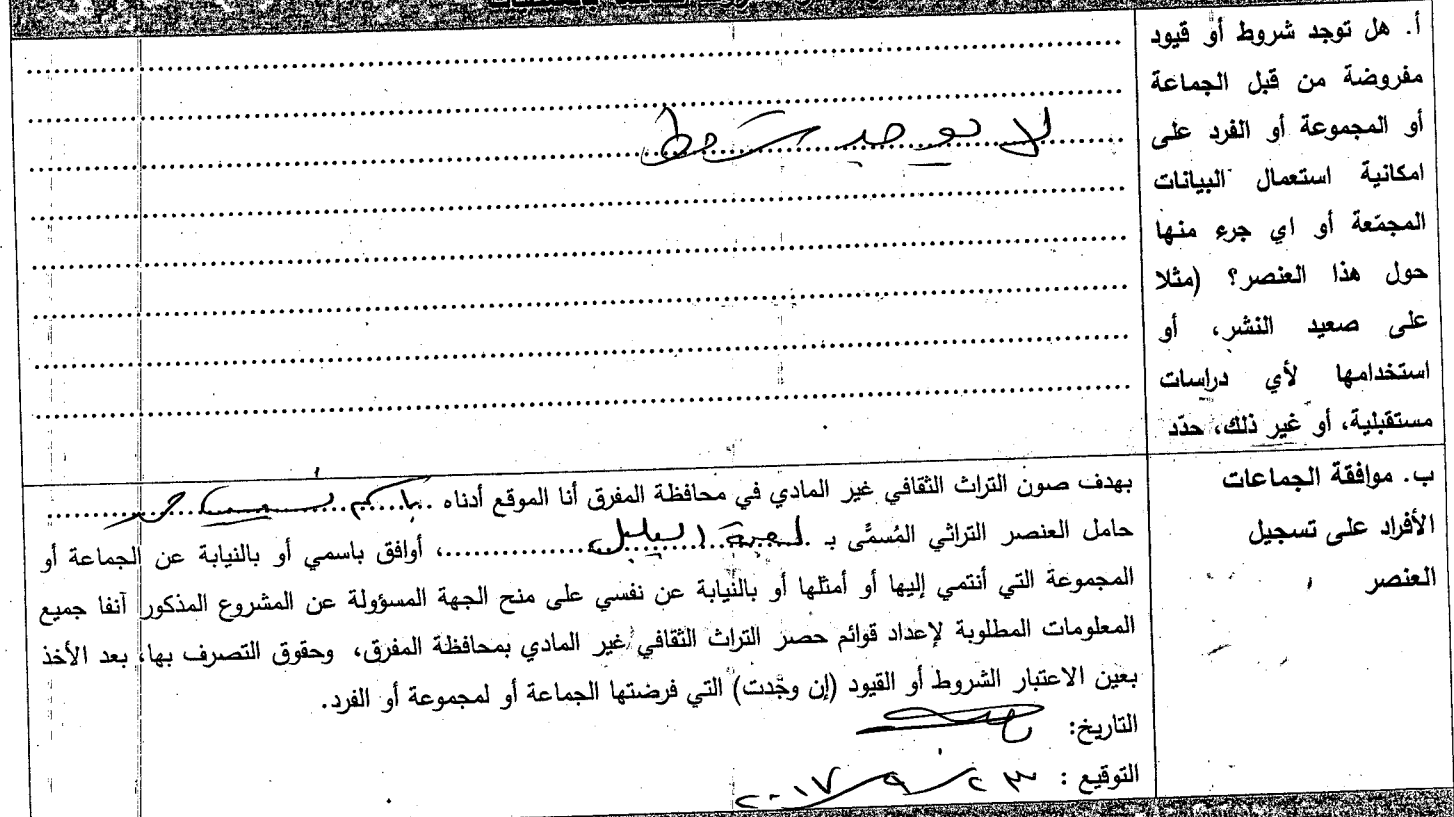 أ. هل توجد شروط أو قيود
مفروضة من قبل الجماعة
أو المجموعة أو الفرد على
امكانية استعمال البيانات
المجمّعة أو اي جرء منها
حول هذا العنصر؟ (مثلا
على صعيد النشر، أو
استخدامها لأي دراسات
مستقبلية، أو غير ذلك، حدّد
لا يوجد شروط
ب. موافقة الجماعات
الأفراد على تسجيل
العنصر
بهدف صون التراث الثقافي غير المادي في محافظة المفرق أنا الموقع أدناه
حامل العنصر التراثي المُسمَّى بـ لعبة ..........، أوافق باسمي أو بالنيابة عن الجماعة أو
المجموعة التي أنتمي إليها أو أمثلها أو بالنيابة عن نفسي على منح الجهة المسؤولة عن المشروع المذكور آنفا جميع
المعلومات المطلوبة لإعداد قوائم حصر التراث الثقافي غير المادي بمحافظة المفرق، وحقوق التصرف بها، بعد الأخذ
بعين الاعتبار الشروط أو القيود (إن وجّدت) التي فرضتها الجماعة أو لمجموعة أو الفرد.
التاريخ:
التوقيع : ٢٣/٩/٢٠١٧